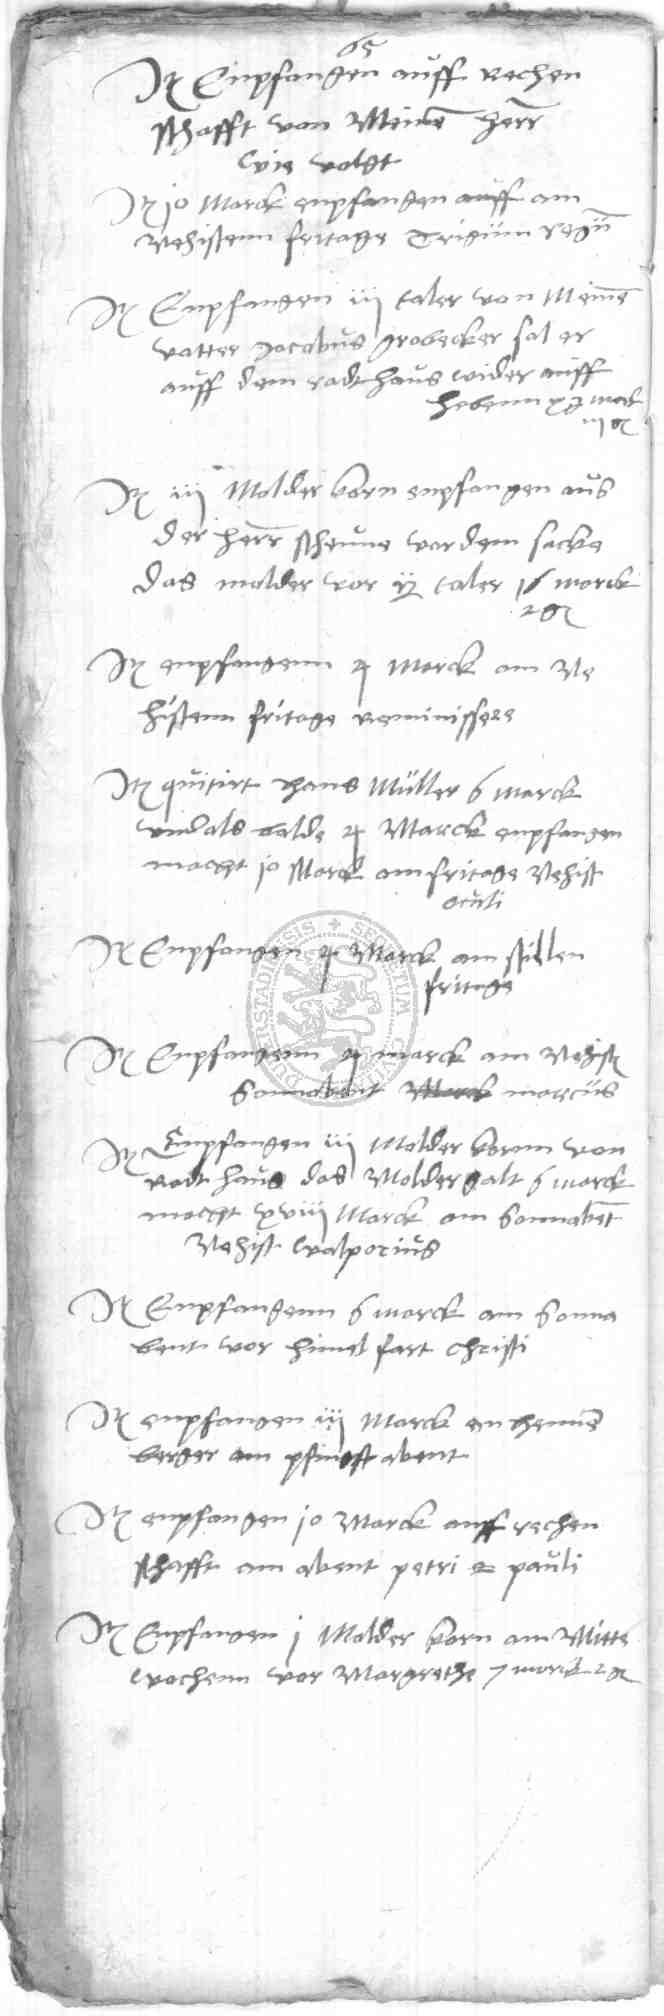 65
It Enpfangen auff rechen
schafft von Meinē herrn
wie volgt
It 10 Marck enpfangen auff am
Nehistenn fritage Trigum regū
It Enpfangen iij taler von Meinē
vatter Jacobus grobecker sal er
auff dem radthaus wider auff
hebenn
It iij Malder korn enpfangen aus
der herrn scheune vor dem sacke
das malder vor taler 16 marck
2 gr
It enpfangenn 4 Marck am Ne
histenn fritage reminissere
It quitirt hans Müller 6 marck
vnd als balde 4 Marck enpfangen
macht 10 Marck am fritage Nehist
oculi
It Enpfangen 4 Marck am stillen
fritage
It Enpfangenn 4 marck am Nehist
Sonnabent Marck marcus
It Empfangen iij Malder korenn von
radthaus das Malder galt 6 marck
macht xviij Marck am Sonnabēt
Nehist walporius
It Enpfangenn 6 marck am Sonna
bent vor himel fart Christi
It enpfangen iij Marck en hennē
berger am pfinst abent
It enpfangen 10 Marck auff rechen
schafft am abent petri et pauli
It Enpfangen j Malder korn am Mitte
wochenn vor Margrethe 7 marck 2 gr
SECRETUM CIVIUM DUDERSTADIENSIS